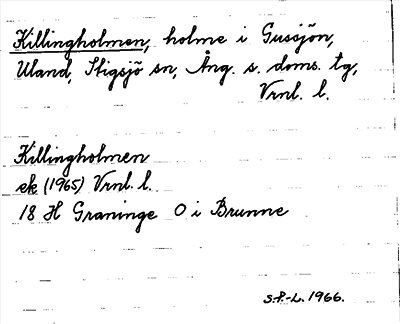 Killingholmen, holme i Gussjön,
Uland, Stigsjö sn, Ång. s. doms. tg,
Vrnl. l.
Killingholmen
ek (1965) Vrnl. l.
18 H Graninge O i Brunne
S.P.-L. 1966.